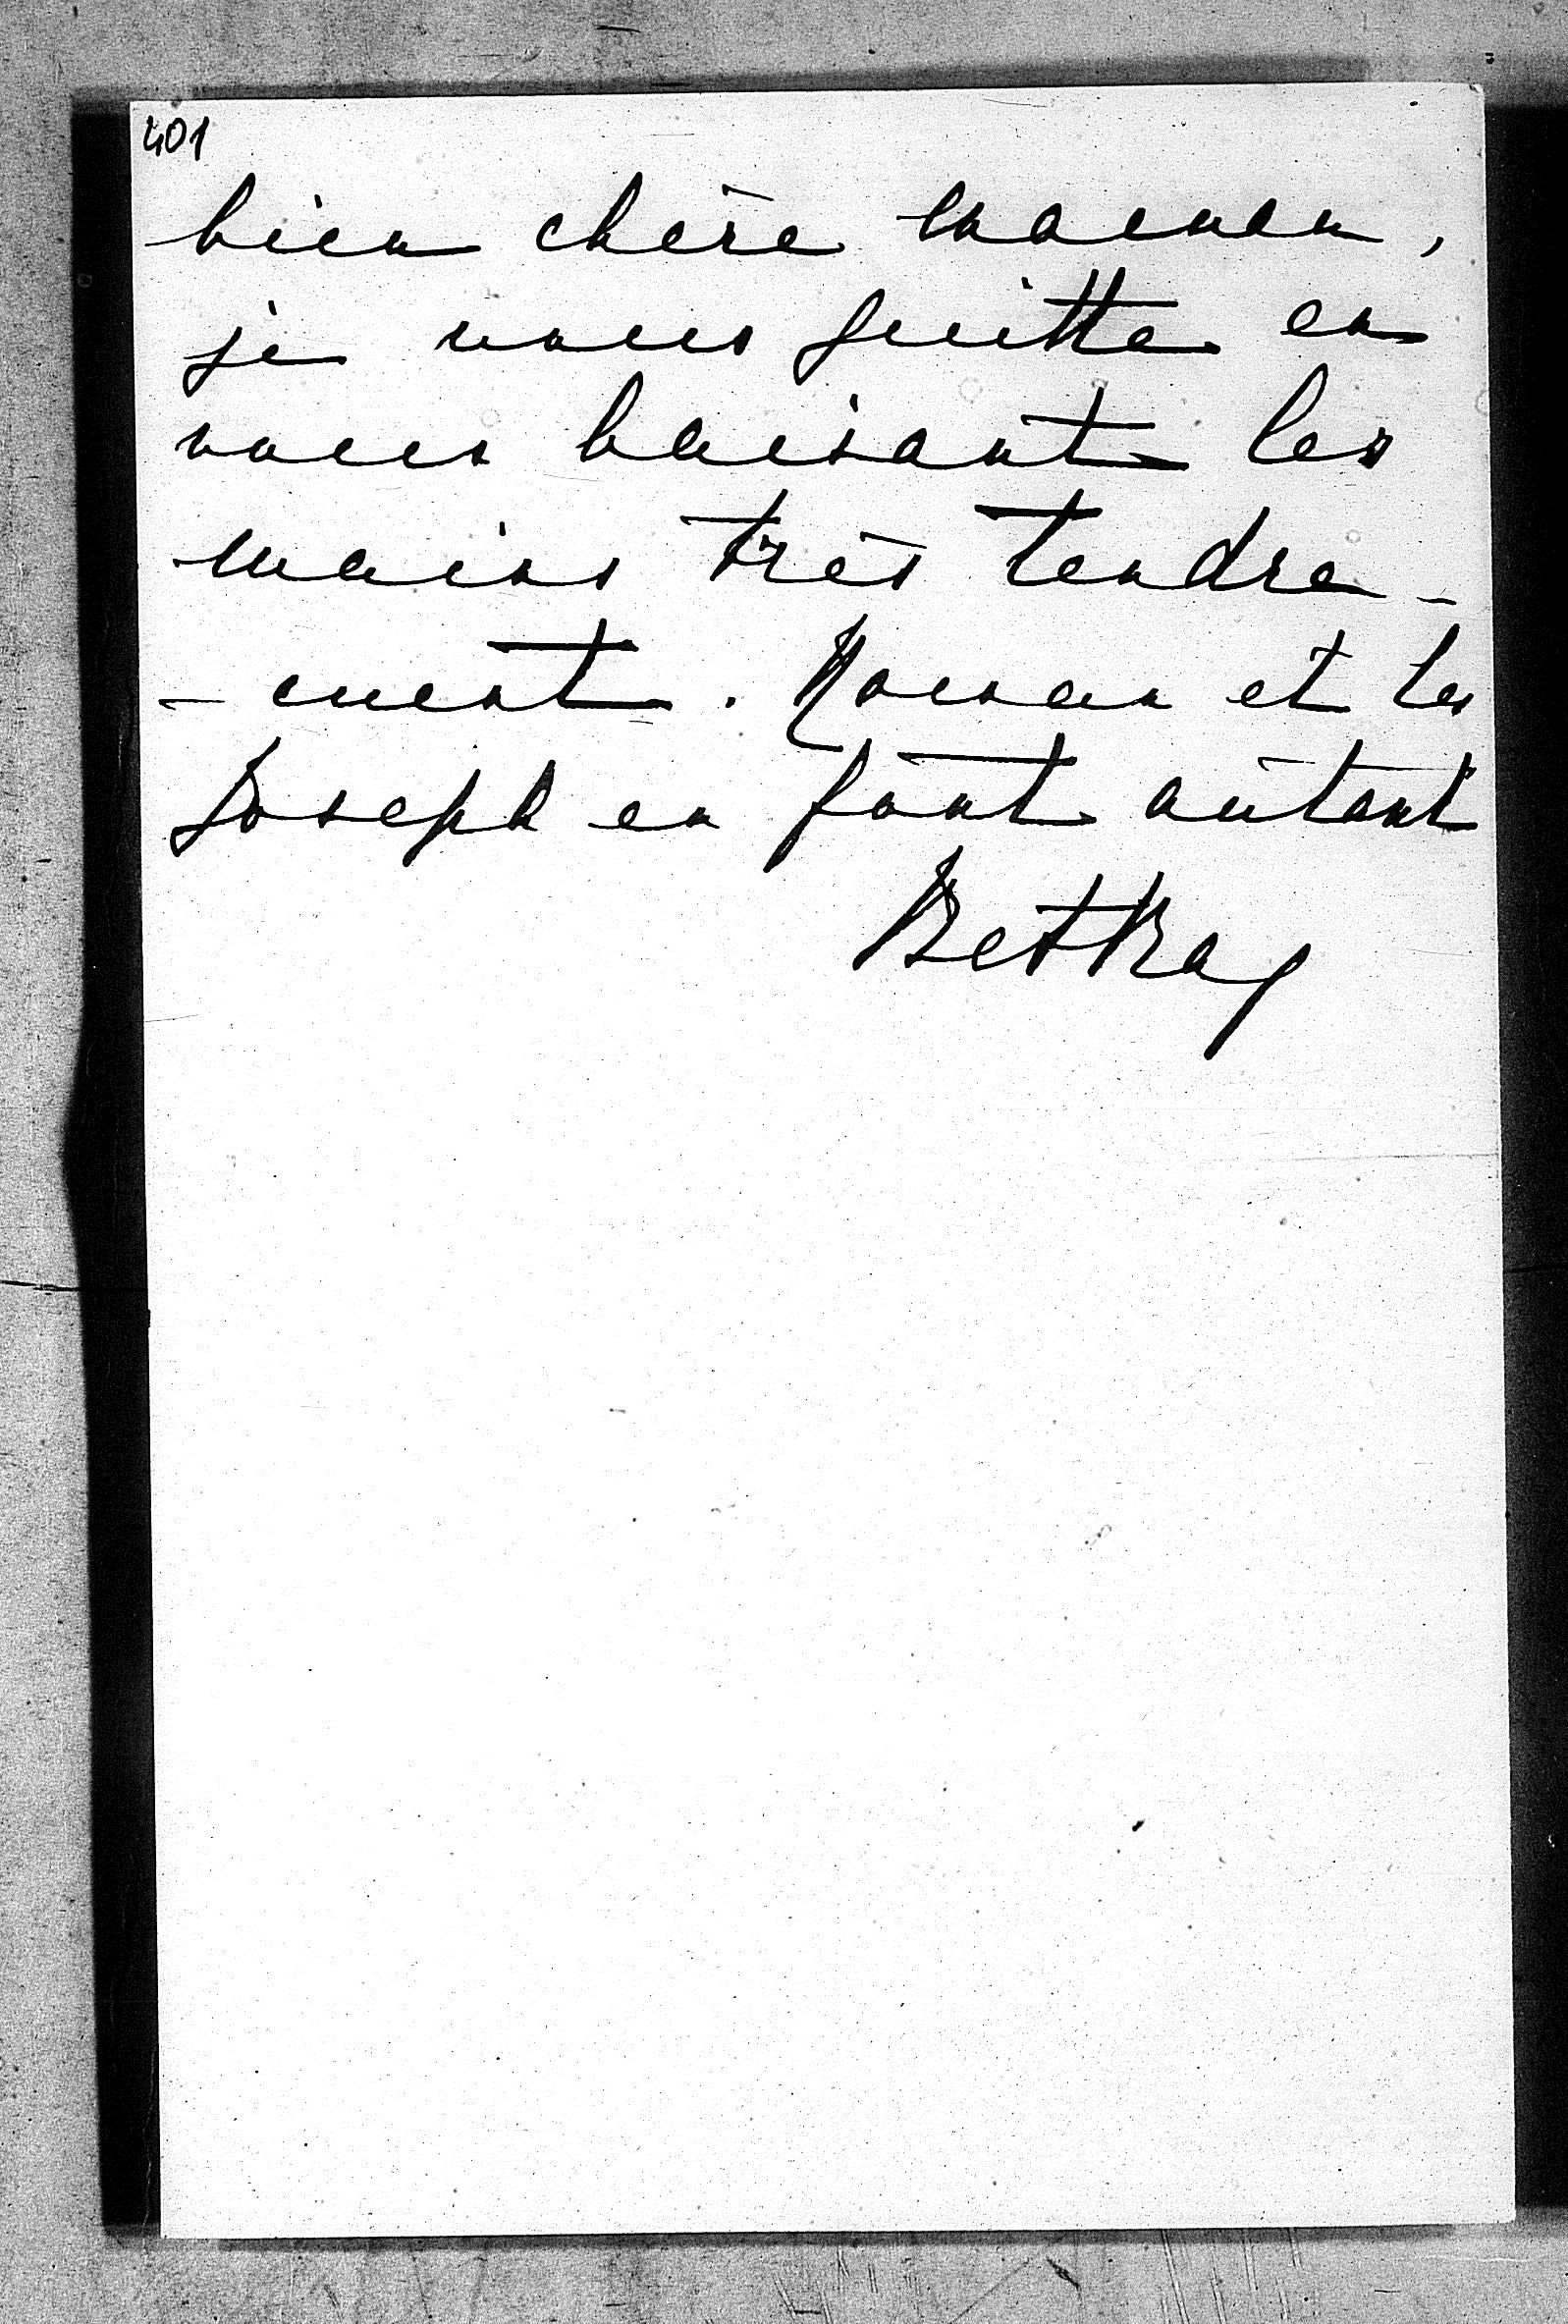 401
bien chère maman,
je vous quitte en
vous baisant les
mains très tendre-
-ment. Roman et les
Joseph en font autant
Betka